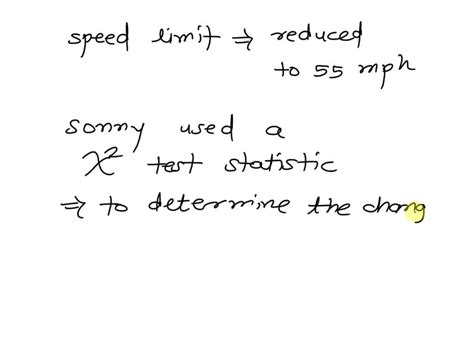 speed limit ⇒ reduced
to 55 mph
sonny used a
χ² test statistic
⇒ to determine the chang